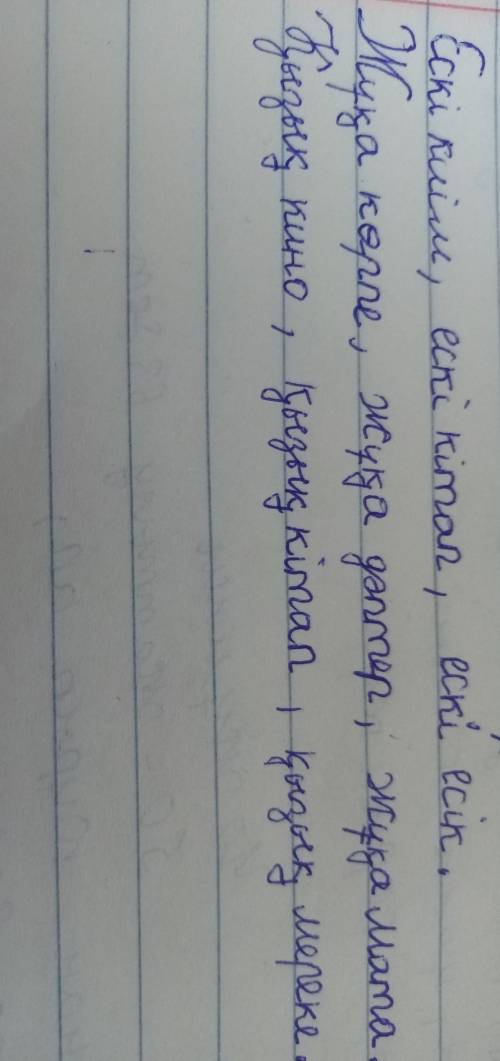 Ескі киім, ескі кітап, ескі есік.
Жұқа көрпе, жұқа дәптер, жұқа мата
Қызық кино, қызық кітап, қызық мереке.